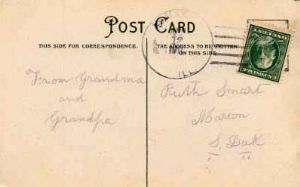 POST CARD
THIS SIDE FOR CORRESPONDENCE.
THE ADDRESS TO BE WRITTEN
ON THIS SIDE
From Grandma
and
Grandpa
Ruth Smart
Marion
S. Dak
ILL